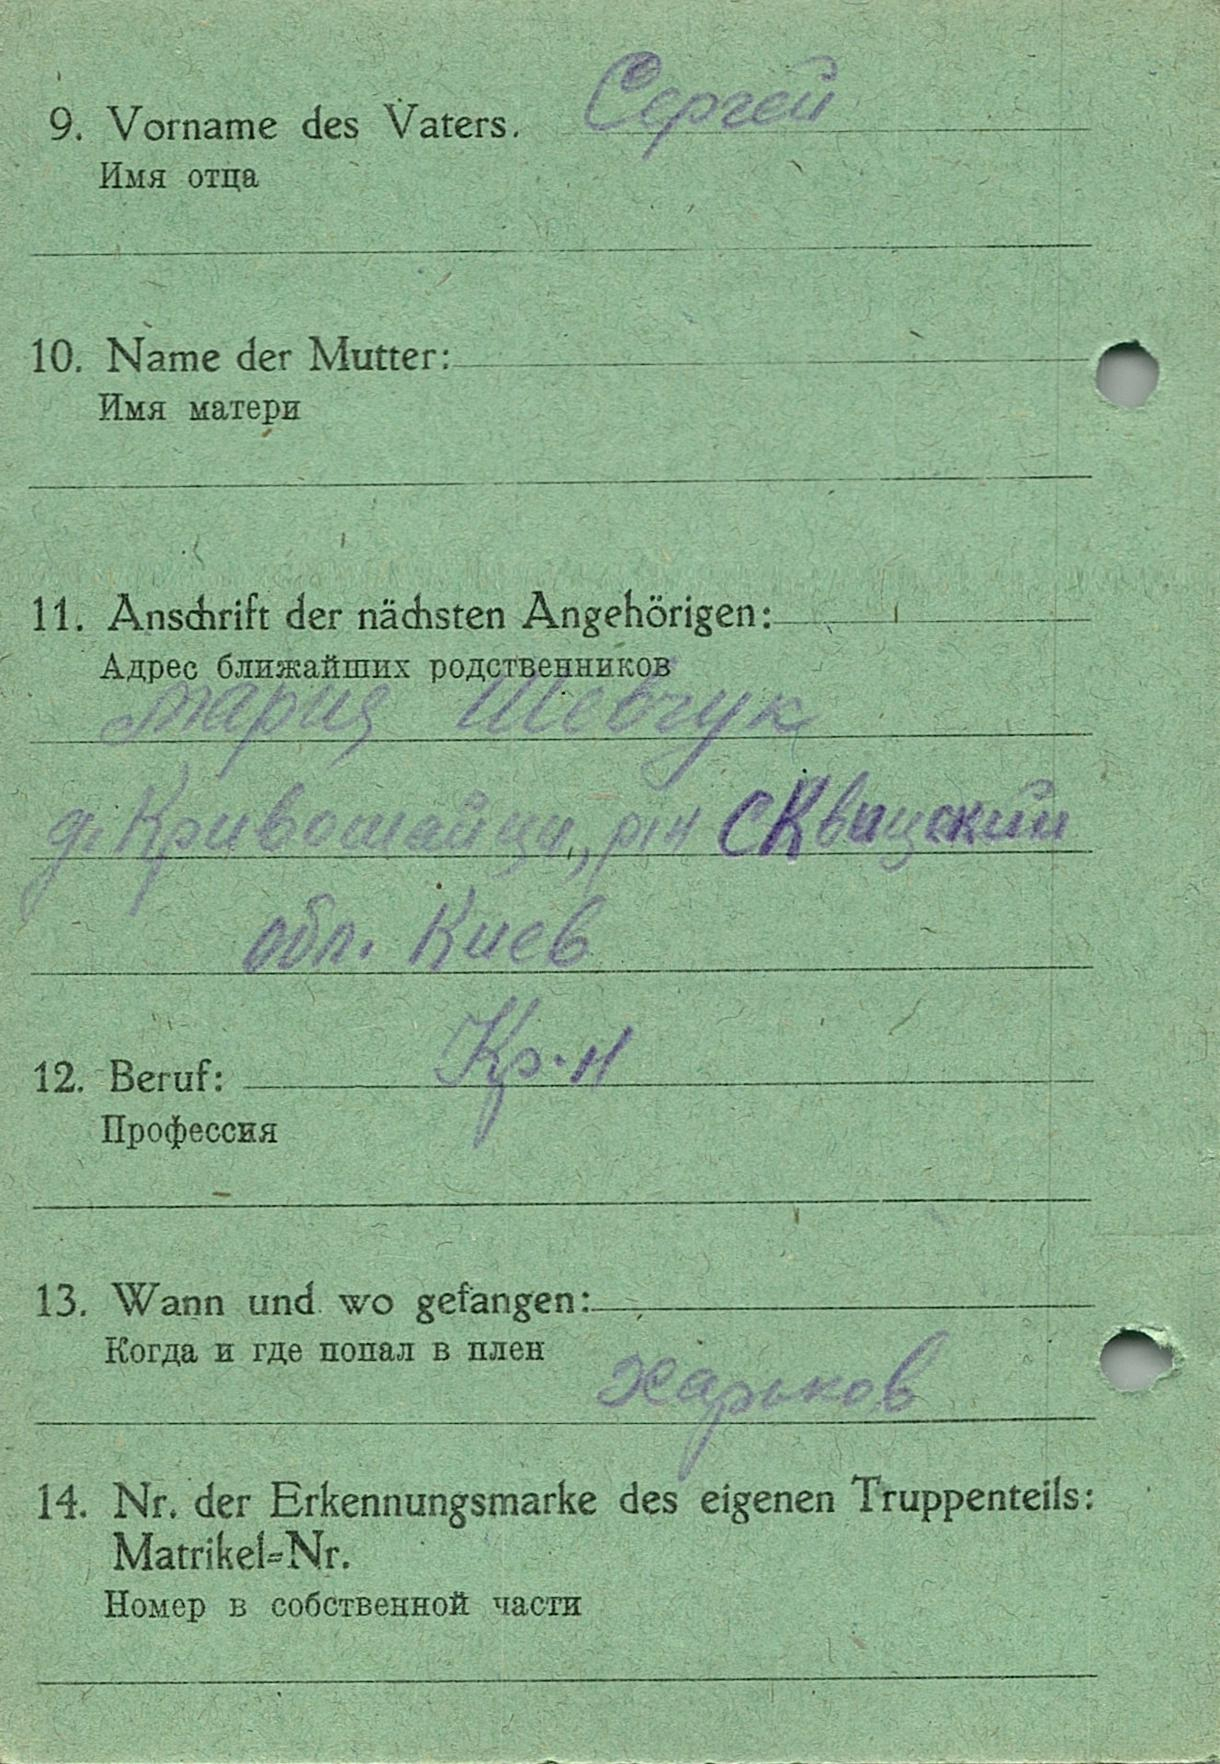 9. Vorname des Vaters. Сергей
Имя отца
10. Name der Mutter:
Имя матери
11. Anschrift der nächsten Angehörigen:
Адрес ближайших родственников
Мария Шевчук
д. Кривошейцы, р-н СКвицский
обл. Киев
12. Beruf: Кр-н
Профессия
13. Wann und wo gefangen:
Когда и где попал в плен
Харьков
14. Nr. der Erkennungsmarke des eigenen Truppenteils:
Matrikel=Nr.
Номер в собственной части